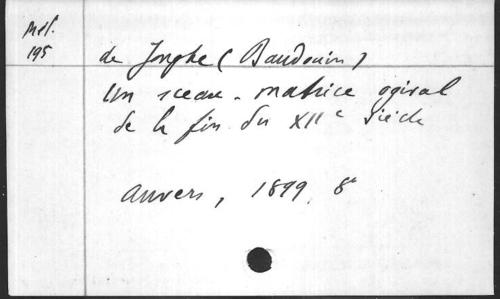 Mél.
195
de Jonghe (Baudouin)
Un sceau-matrice ogival
de la fin du XIIe siècle
Anvers, 1899, 8°